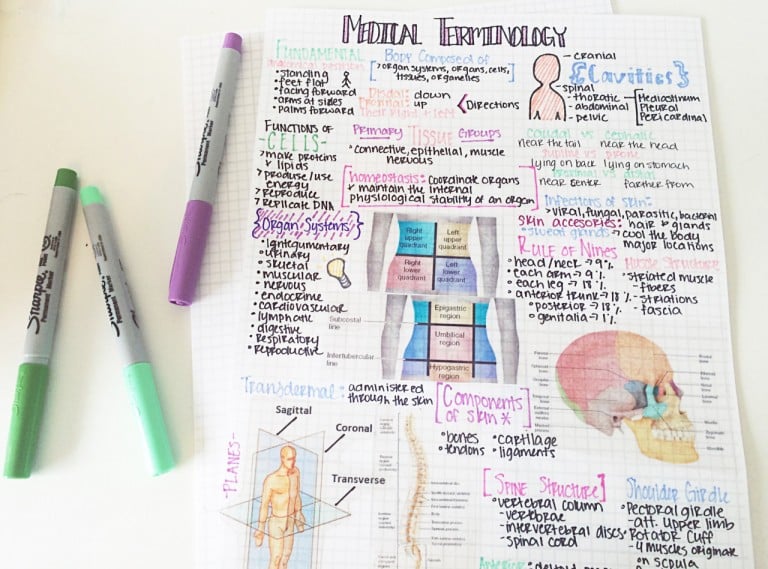 MEDICAL TERMINOLOGY
FUNDAMENTAL
anatomical position
• standing
• feet flat
• facing forward
• arms at sides
• palms forward
Body Composed of
> organ systems, organs, cells,
tissues, organelles
Distal: down
Proximal: up
Their right + left
Directions
- cranial
spinal
- thoratic
- abdominal
- pelvic
{Cavities}
Mediastinum
Pleural
Pericardinal
FUNCTIONS OF
-CELLS-
> make proteins
& lipids
> produse/use
energy
> reproduce
> replicate DNA
Primary TISSUE Groups
• connective, epithelial, muscle
nervous
homeostasts: coordinate organs
& maintain the internal
physiological stability of an organ
caudal vs cephalic
near the tail near the head
supine vs prone
lying on back lying on stomach
proximal vs distal
near center farther from
Infections of skin:
> viral, fungal, parasitic, bacterial
skin accesories: hair & glands
• sweat glands > cool the body
major locations
{Organ Systems}
• Integumentary
• urinary
• skeletal
• muscular
• nervous
• endocrine
• cardiovascular
• lymphatic
• digestive
• respiratory
• reproductive
Right upper quadrant
Left upper quadrant
Right lower quadrant
Left lower quadrant
Epigastric region
Umbilical region
Hypogastric region
Subcostal line
Intertubercular line
RULE OF NINES
• head/neck → 9%
• each arm → 9%
• each leg → 18%
• anterior trunk → 18%
• posterior → 18%
• genitalia → 1%
Muscle Structure
• striated muscle
- fibers
- striations
- fascia
Transdermal: administered
through the skin
[Components
of skin *]
• bones • cartilage
• tendons • ligaments
-PLANES-
Sagittal
Coronal
Transverse
[SPINE STRUCTURE]
• vertebral column
- vertebrae
- intervertebral discs
- spinal cord
Shoulder Girdle
• Pectoral girdle
- att. upper limb
• Rotator Cuff
- 4 muscles originate
on scpula
Anterior:
Sharpie
Permanent Marker
Sharpie
Sharpie